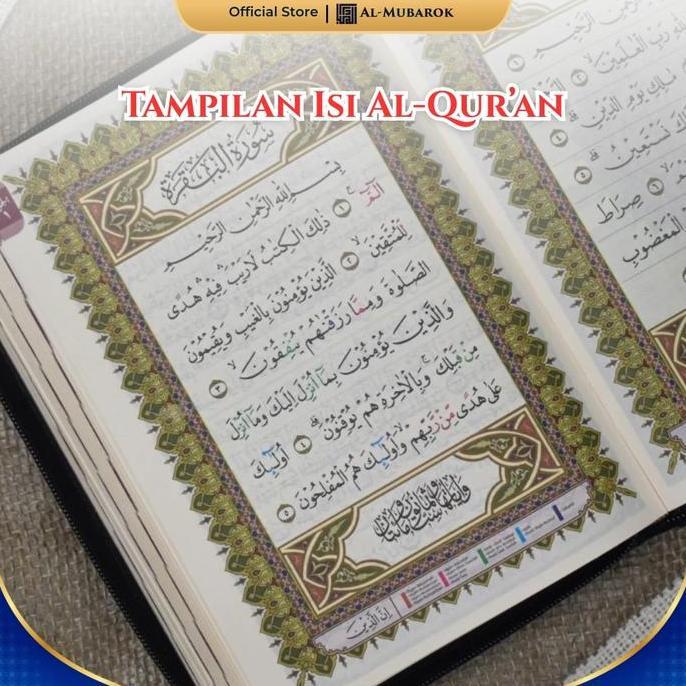 Official Store | AL-MUBAROK
TAMPILAN ISI AL-QUR'AN
سُورَةُ الْبَقَرَةِ
بِسْمِ اللهِ الرَّحْمٰنِ الرَّحِيْمِ
الۤمّۤ ۚ ١ ذٰلِكَ الْكِتٰبُ لَا رَيْبَ فِيْهِ هُدًى
لِّلْمُتَّقِيْنَ ٢ الَّذِيْنَ يُؤْمِنُوْنَ بِالْغَيْبِ وَيُقِيْمُوْنَ
الصَّلٰوةَ وَمِمَّا رَزَقْنٰهُمْ يُنْفِقُوْنَ ٣
وَالَّذِيْنَ يُؤْمِنُوْنَ بِمَآ اُنْزِلَ اِلَيْكَ وَمَآ اُنْزِلَ
مِنْ قَبْلِكَ ۚ وَبِالْاٰخِرَةِ هُمْ يُوْقِنُوْنَ ٤ اُولٰۤىِٕكَ
عَلٰى هُدًى مِّنْ رَّبِّهِمْ وَاُولٰۤىِٕكَ هُمُ الْمُفْلِحُوْنَ ٥
اِنَّ الَّذِيْنَ
الرَّحْمٰنِ الرَّحِيْمِ
رَبِّ الْعٰلَمِيْنَ
مٰلِكِ يَوْمِ الدِّيْنِ
نَسْتَعِيْنُ
صِرَاطَ
الْمَغْضُوْبِ